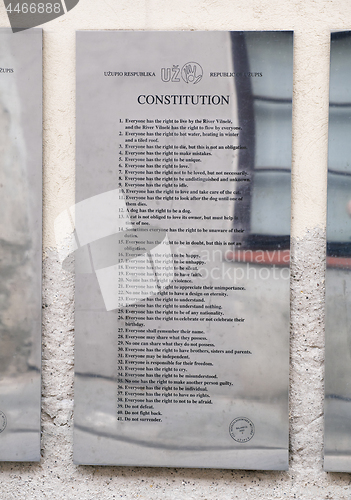 4466888
UŽUPIO RESPUBLIKA UŽ REPUBLIC UŽUPIS
CONSTITUTION
1. Everyone has the right to live by the River Vilnelė,
and the River Vilnelė has the right to flow by everyone.
2. Everyone has the right to hot water, heating in winter
and a tiled roof.
3. Everyone has the right to die, but this is not an obligation.
4. Everyone has the right to make mistakes.
5. Everyone has the right to be unique.
6. Everyone has the right to love.
7. Everyone has the right not to be loved, but not necessarily.
8. Everyone has the right to be undistinguished and unknown.
9. Everyone has the right to idle.
10. Everyone has the right to love and take care of the cat.
11. Everyone has the right to look after the dog until one of
them dies.
12. A dog has the right to be a dog.
13. A cat is not obliged to love its owner, but must help in
time of nee.
14. Sometimes everyone has the right to be unaware of their
duties.
15. Everyone has the right to be in doubt, but this is not an
obligation.
16. Everyone has the right to be happy.
17. Everyone has the right to be unhappy.
18. Everyone has the right to be silent.
19. Everyone has the right to have faith.
20. No one has the right to violence.
21. Everyone has the right to appreciate their unimportance.
22. No one has the right to have a design on eternity.
23. Everyone has the right to understand.
24. Everyone has the right to understand nothing.
25. Everyone has the right to be of any nationality.
26. Everyone has the right to celebrate or not celebrate their
birthday.
27. Everyone shall remember their name.
28. Everyone may share what they possess.
29. No one can share what they do not possess.
30. Everyone has the right to have brothers, sisters and parents.
31. Everyone may be independent.
32. Everyone is responsible for their freedom.
33. Everyone has the right to cry.
34. Everyone has the right to be misunderstood.
35. No one has the right to make another person guilty.
36. Everyone has the right to be individual.
37. Everyone has the right to have no rights.
38. Everyone has the right to not to be afraid.
39. Do not defeat.
40. Do not fight back.
41. Do not surrender.